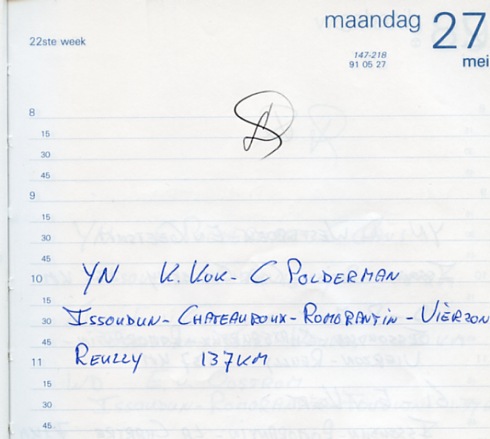 maandag 27
22ste week
147-218
91 05 27
mei
8
15
30
45
9
15
30
45
10 YN K.KOK - C POLDERMAN
15
30 ISSOUDUN - CHATEAUROUX - ROMORANTIN - VIÈRZON
45
11 REUILLY 137KM
15
30
45